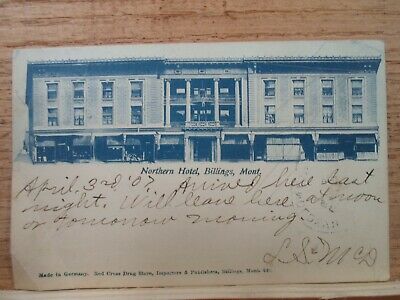 Northern Hotel, Billings, Mont.
April 3rd '07. Arrived here last
night. Will leave here at noon
or tomorrow morning.
L. S. McD
Made in Germany. Red Cross Drug Store, Importers & Publishers, Billings, Mont.